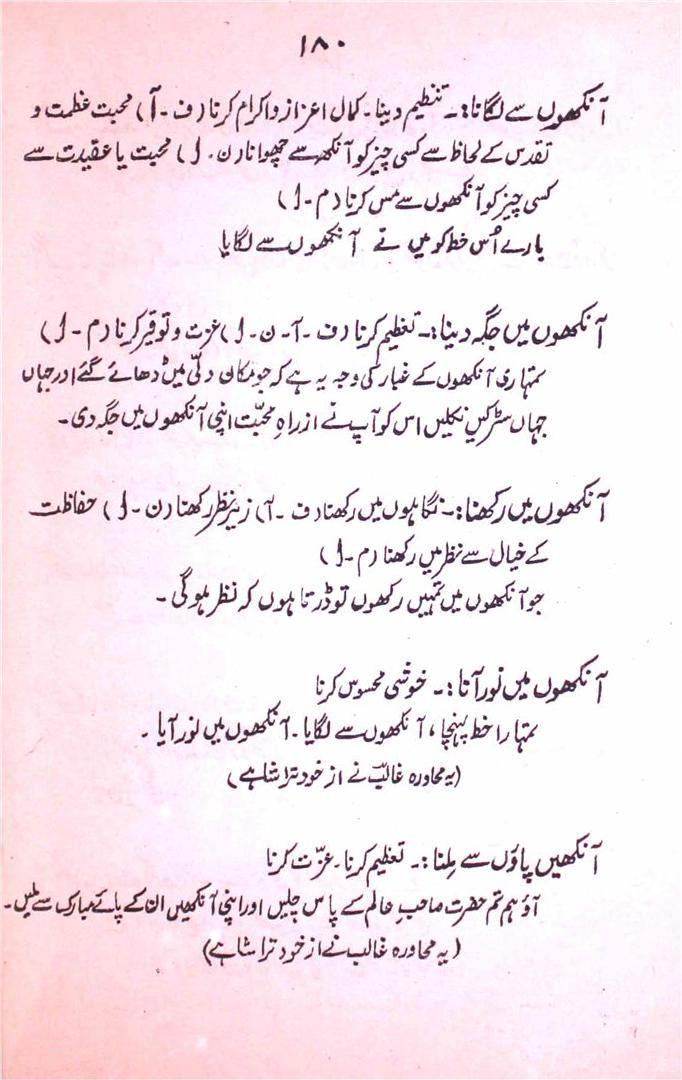 ۱۸۰
آنکھوں سے لگانا:۔ تنظیم دینا۔ کمال اعزاز و اکرام کرنا (ف۔آ) محبت عظمت و
تقدس کے لحاظ سے کسی چیز کو آنکھ سے چھوانا (ن۔ ل) محبت یا عقیدت سے
کسی چیز کو آنکھوں سے مَس کرنا (م۔ ل)
بارے اُس خط کو میں نے آنکھوں سے لگایا
آنکھوں میں جگہ دینا:۔ تعظیم کرنا (ف۔ آ۔ ن۔ ل) عزت و توقیر کرنا (م۔ ل)
تمہاری آنکھوں کے غبار کی وجہ یہ ہے کہ جو مکان دلّی میں ڈھائے گئے اور جہاں
جہاں سڑکیں نکلیں اس کو آپ نے از راہِ محبّت اپنی آنکھوں میں جگہ دی۔
آنکھوں میں رکھنا:۔ نگاہوں میں رکھنا (ف ۔آ) زیر نظر رکھنا (ن۔ ل) حفاظت
کے خیال سے نظر میں رکھنا (م۔ ل)
جو آنکھوں میں تمہیں رکھوں تو ڈرتا ہوں کہ نظر ہوگی۔
آنکھوں میں نور آنا:۔ خوشی محسوس کرنا
تمہارا خط پہنچا، آنکھوں سے لگایا۔ آنکھوں میں نور آیا۔
(یہ محاورہ غالبؔ نے از خود تراشا ہے)
آنکھیں پاؤں سے مِلنا:۔ تعظیم کرنا۔ عزّت کرنا
آؤ ہم تم حضرت صاحبِ عالم کے پاس چلیں اور اپنی آنکھیں ان کے پائے مبارک سے ملیں۔
(یہ محاورہ غالب نے از خود تراشا ہے)